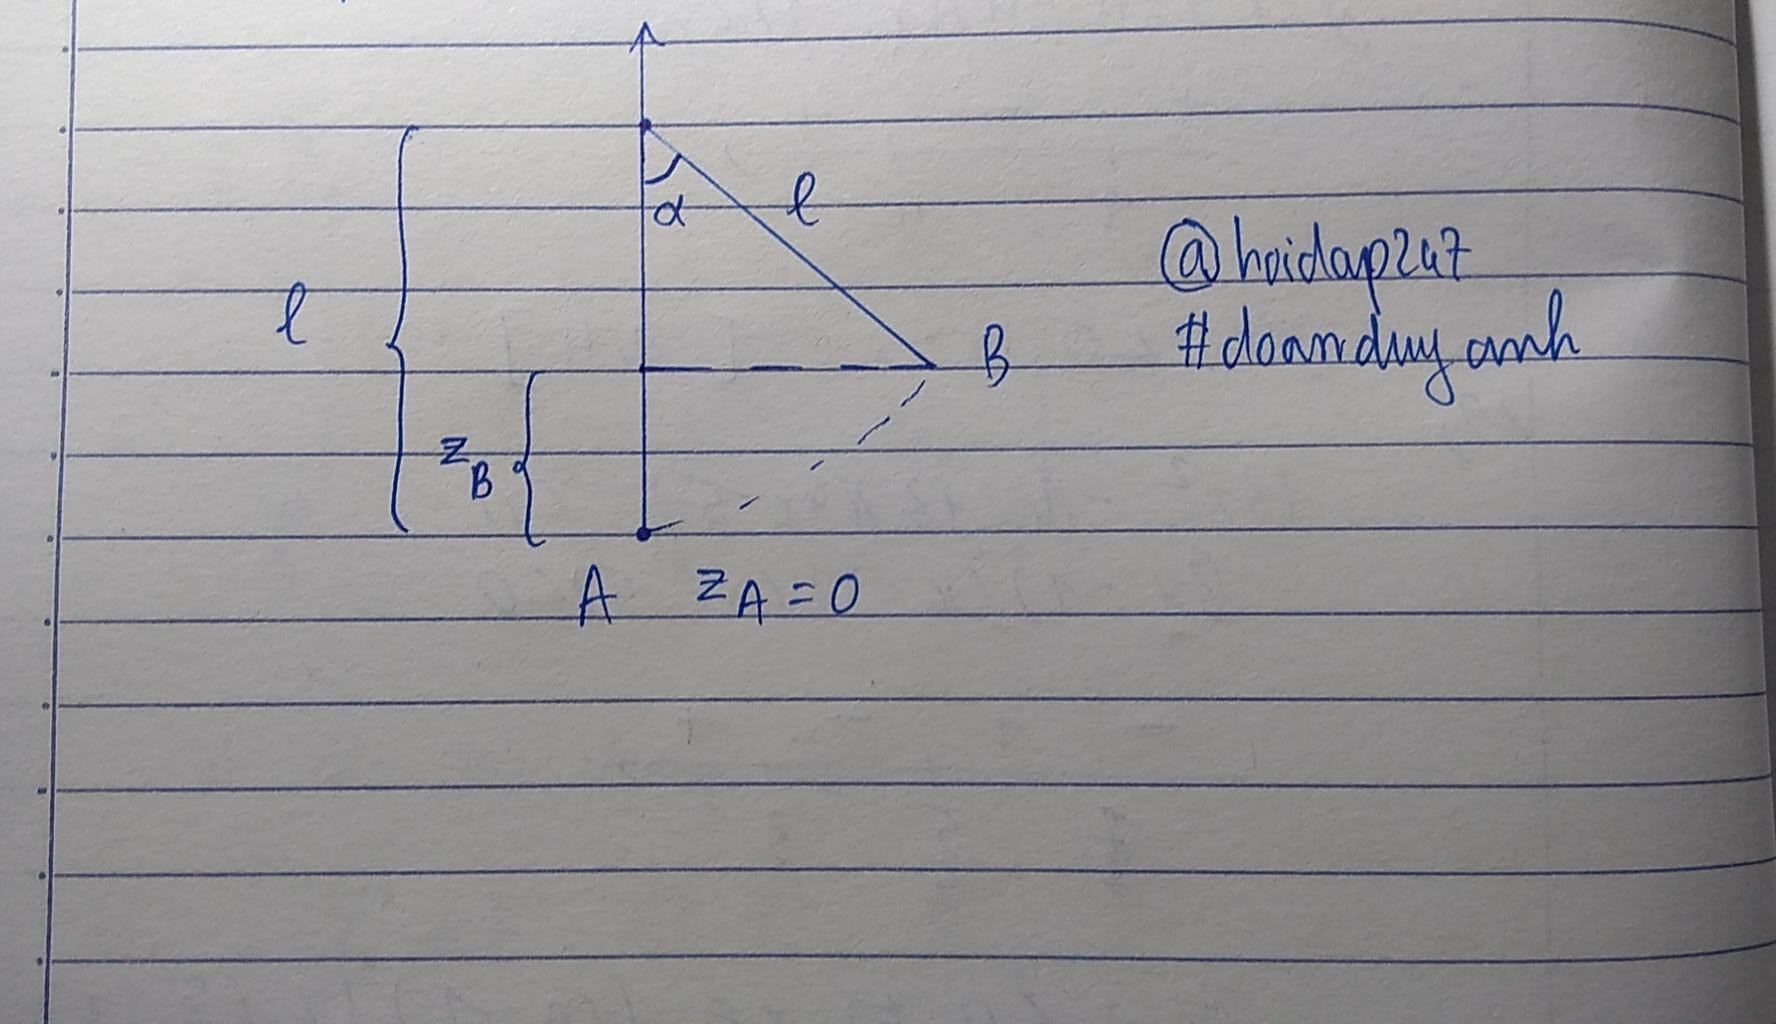 α
l
@hoidap247
l
B
#doanduyanh
z_B
A z_A = 0